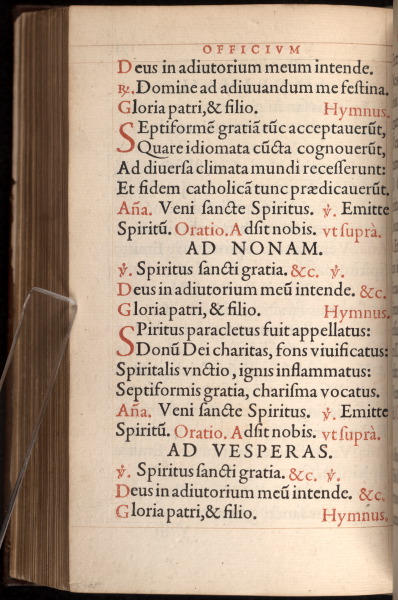 OFFICIVM
Deus in adiutorium meum intende.
℟. Domine ad adiuuandum me feſtina.
Gloria patri, & filio. Hymnus.
SEptiformē gratiā tūc acceptauerūt,
Quare idiomata cūcta cognouerūt,
Ad diuerſa climata mundi receſſerunt:
Et fidem catholicā tunc prædicauerūt.
Aña. Veni ſancte Spiritus. ℣. Emitte
Spiritū. Oratio. Adſit nobis. vt ſuprà.
AD NONAM.
℣. Spiritus ſancti gratia. &c. ℣.
Deus in adiutorium meū intende. &c.
Gloria patri, & filio. Hymnus.
SPiritus paracletus fuit appellatus:
Donū Dei charitas, fons viuificatus:
Spiritalis vnctio, ignis inflammatus:
Septiformis gratia, chariſma vocatus.
Aña. Veni ſancte Spiritus. ℣. Emitte
Spiritū. Oratio. Adſit nobis. vt ſuprà.
AD VESPERAS.
℣. Spiritus ſancti gratia. &c. ℣.
Deus in adiutorium meū intende. &c.
Gloria patri, & filio. Hymnus.